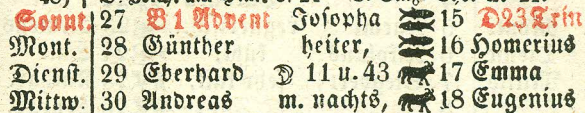 Sonnt. 27 B 1 Advent Josopha 15 D23Trin
Mont. 28 Günther heiter, 16 Homerius
Dienst. 29 Eberhard ☽ 11 u. 43 17 Emma
Mittw. 30 Andreas m. nachts, 18 Eugenius